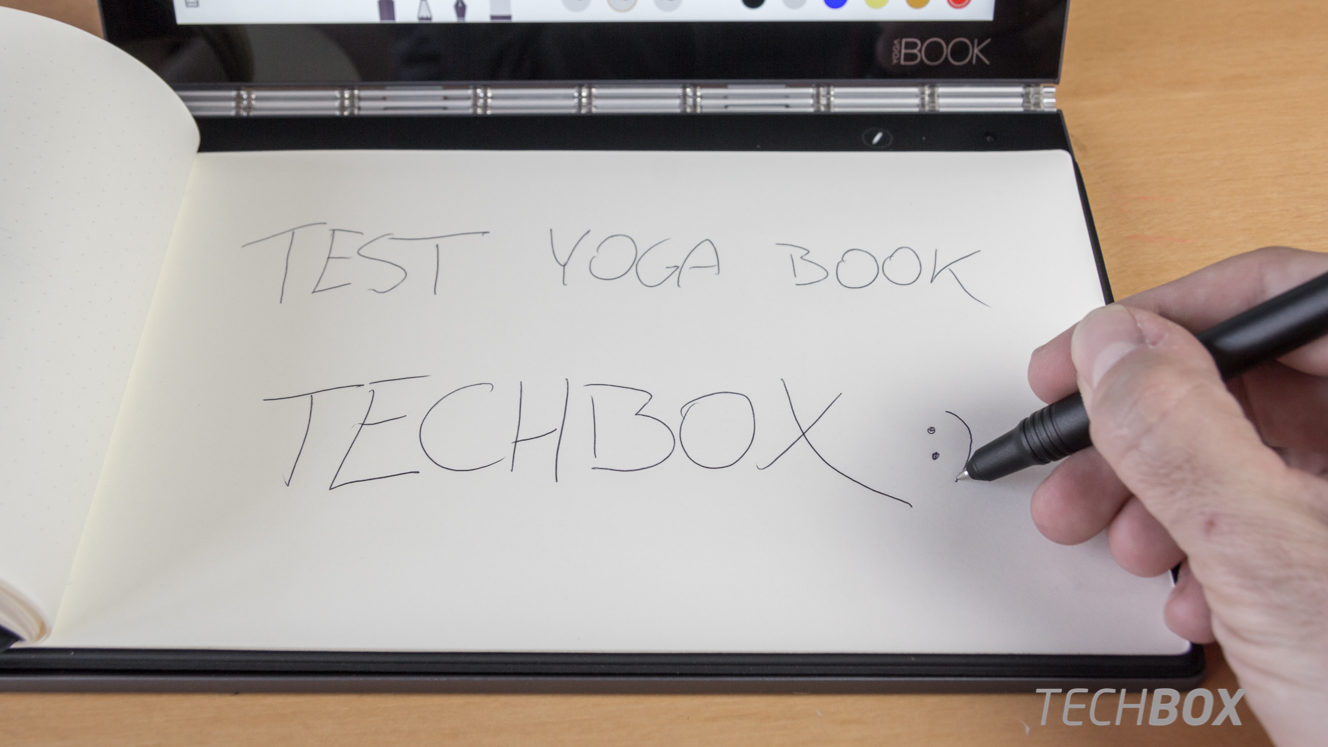 YOGA BOOK
TEST YOGA BOOK
TECHBOX :)
TECHBOX